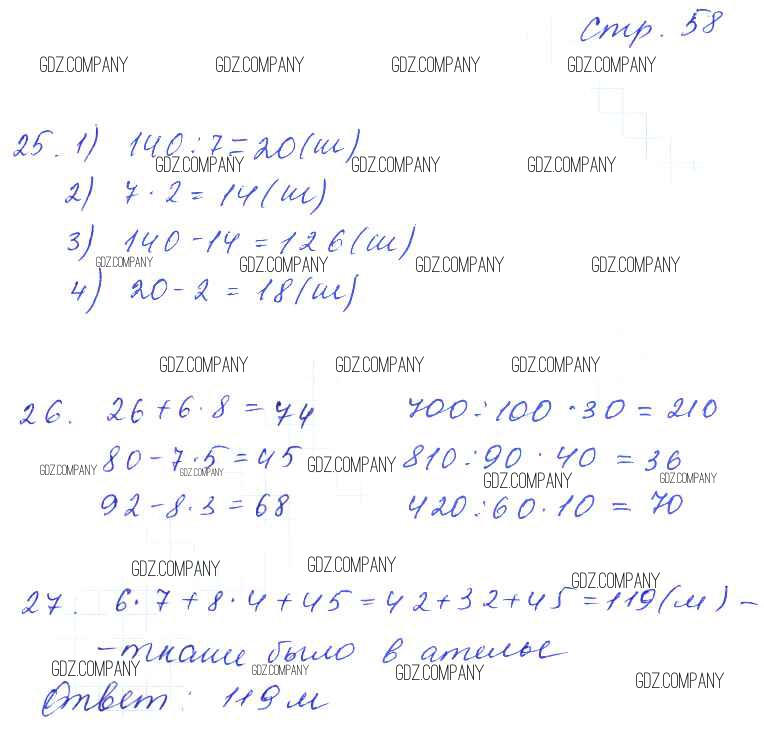 стр. 58
GDZ.COMPANY GDZ.COMPANY GDZ.COMPANY GDZ.COMPANY
25. 1) 140 : 7 = 20 (ш)
GDZ.COMPANY GDZ.COMPANY GDZ.COMPANY
2) 7 · 2 = 14 (ш)
3) 140 - 14 = 126 (ш)
GDZ.COMPANY GDZ.COMPANY GDZ.COMPANY GDZ.COMPANY
4) 20 - 2 = 18 (ш)
GDZ.COMPANY GDZ.COMPANY GDZ.COMPANY
26. 26 + 6 · 8 = 74 700 : 100 · 30 = 210
80 - 7 · 5 = 45 810 : 90 · 40 = 36
GDZ.COMPANY GDZ.COMPANY GDZ.COMPANY GDZ.COMPANY GDZ.COMPANY
92 - 8 · 3 = 68 420 : 60 · 10 = 70
GDZ.COMPANY GDZ.COMPANY GDZ.COMPANY
27. 6 · 7 + 8 · 4 + 45 = 42 + 32 + 45 = 119 (м) -
- ткани было в ателье
GDZ.COMPANY GDZ.COMPANY GDZ.COMPANY GDZ.COMPANY
Ответ: 119 м